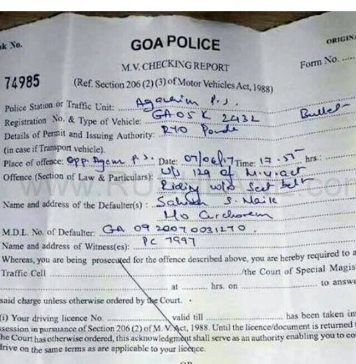 ok No. GOA POLICE ORIGIN
M.V. CHECKING REPORT Form No.
74985 (Ref. Section 206 (2) (3) of Motor Vehicles Act, 1988)
Police Station or Traffic Unit: Agacaim P.S.
Registration No. & Type of Vehicle: GA 05 K 2432 Bullet
Details of Permit and Issuing Authority: RTO Ponda
(in case if Transport vehicle).
Place of offence: Opp. Agcm P.S. Date: 07/06/17 Time: 17.55 hrs:
Offence (Section of Law & Particulars): U/s 129 of M.V. act
Riding w/o Seat belt
Name and address of the Defaulter(s): S. Naik
r/o Curchorem
M.D.L. No. of Defaulter: GA 0920070031240
Name and address of Witness(es): PC 7997
Whereas, you are being prosecuted for the offence described above, you are hereby required to a
Traffic Cell /the Court of Special Magis
at hrs. on to answe
said charge unless otherwise ordered by the Court.
(i) Your driving licence No. valid till has been taken in
ssession in pursuance of Section 206 (2) of M.V. Act, 1988. Until the licence/document is returned t
the Court has otherwise ordered, this acknowledgment shall serve as an authority enabling you to co
drive on the same terms as applicable to your licence.